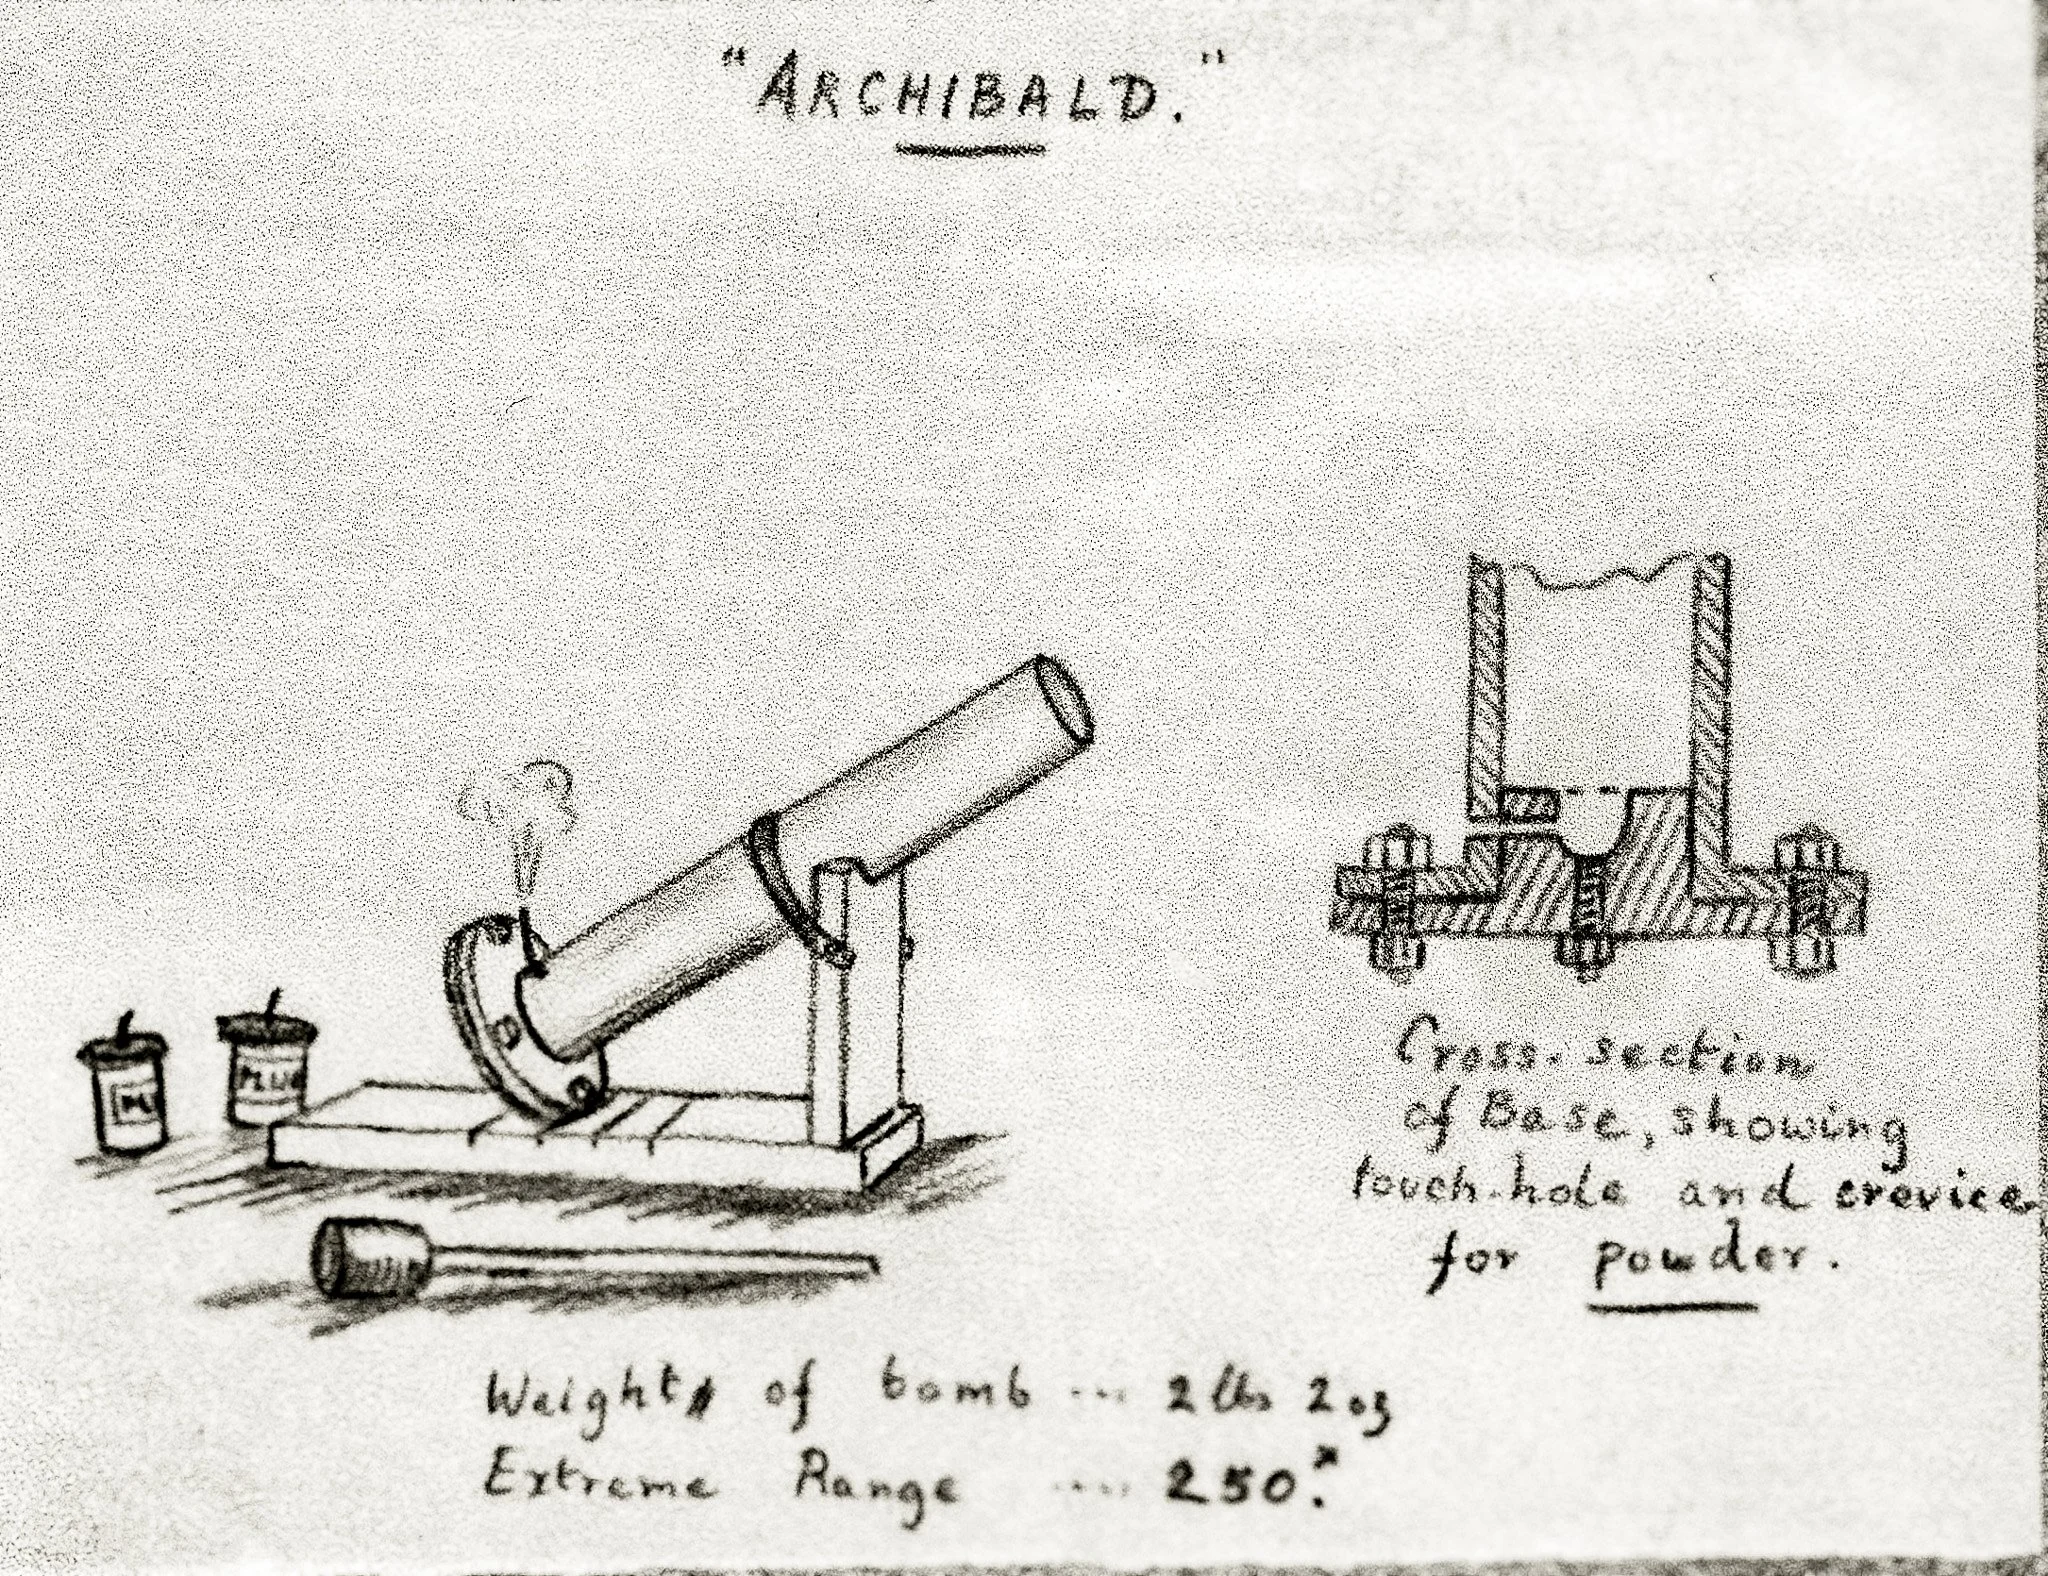 "ARCHIBALD."
PLUM
Cross-section
of Base, showing
touch-hole and crevice
for powder.
Weight of bomb ... 2 lbs 2 oz
Extreme Range .... 250.ˣ